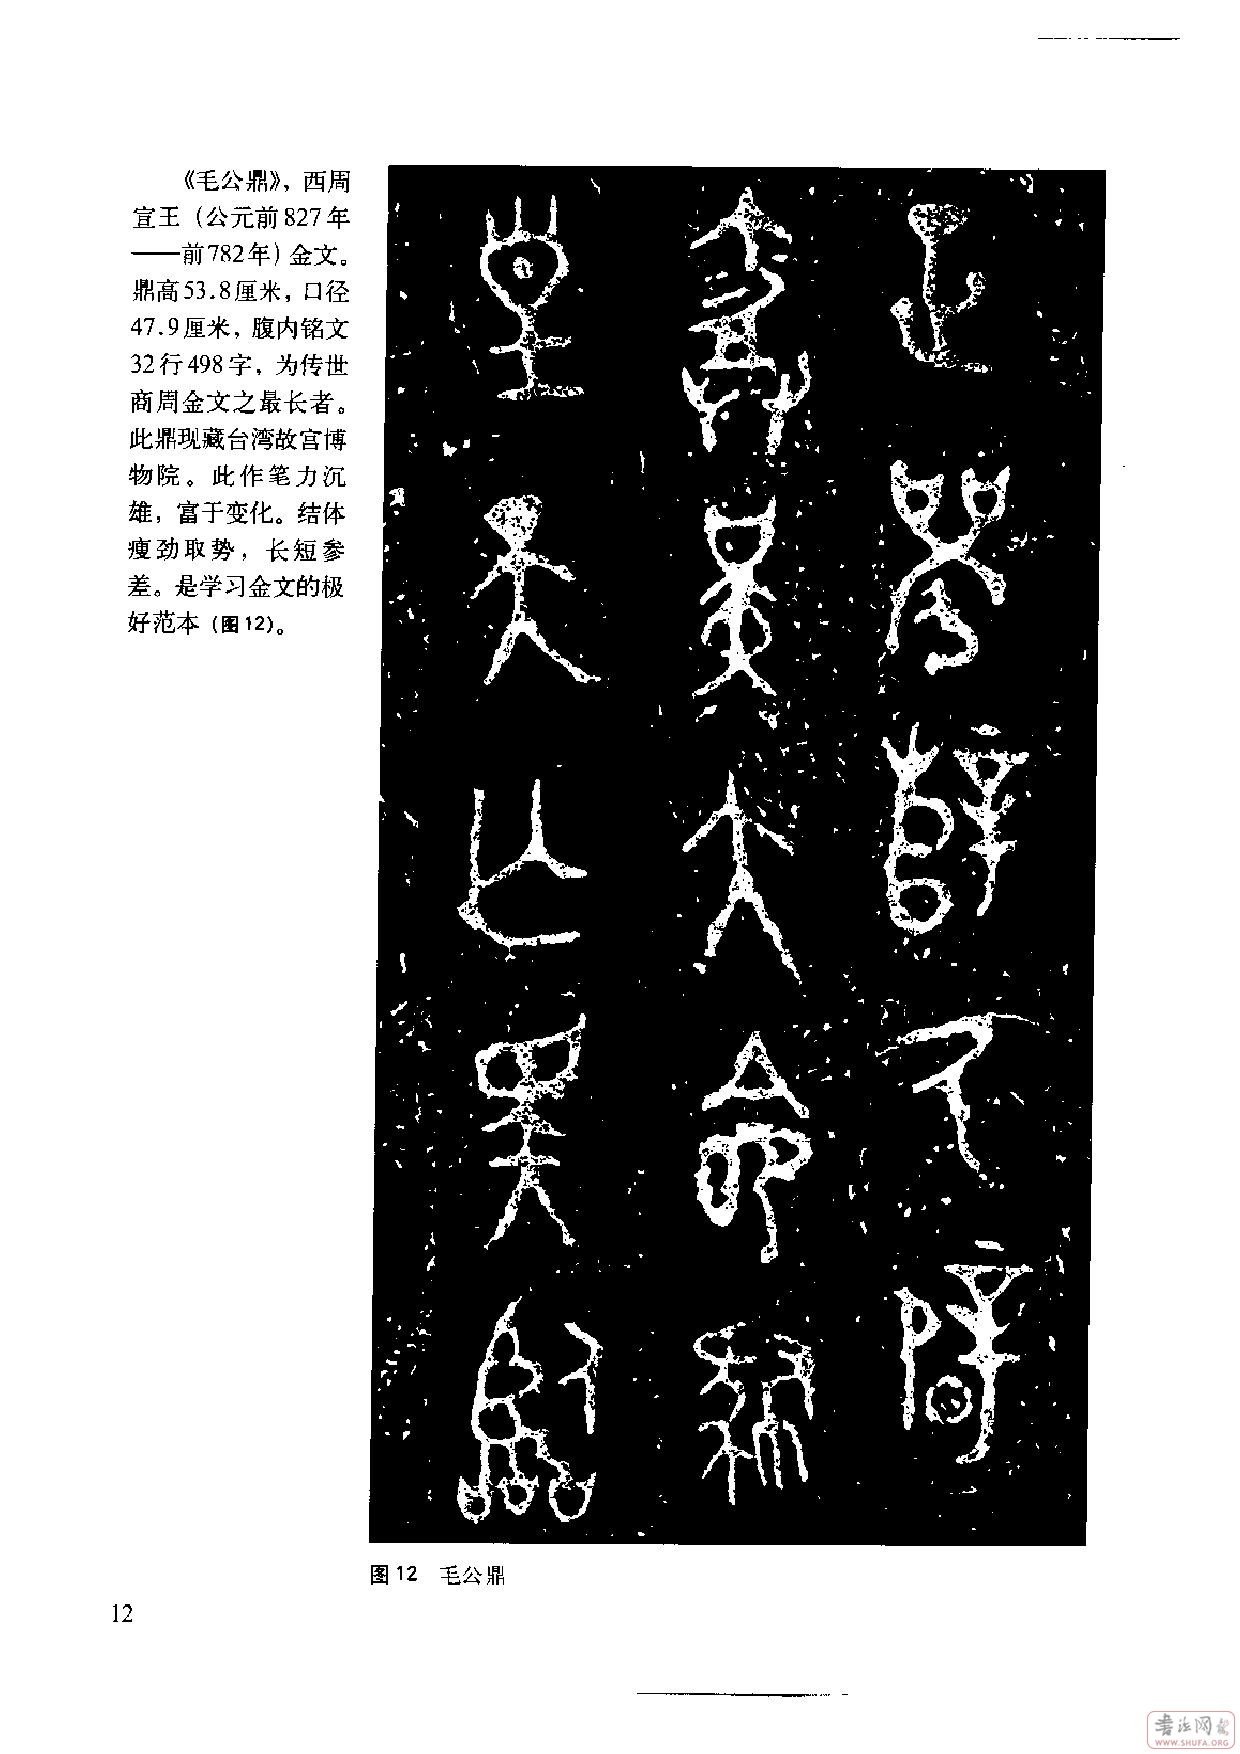 《毛公鼎》，西周
宣王（公元前827年
——前782年）金文。
鼎高53.8厘米，口径
47.9厘米，腹内铭文
32行498字，为传世
商周金文之最长者。
此鼎现藏台湾故宫博
物院。此作笔力沉
雄，富于变化。结体
瘦劲取势，长短参
差。是学习金文的极
好范本（图12）。
辥氒辟
堇大命
皇天亡斁臨
图12 毛公鼎
12
书法网
WWW.SHUFA.ORG